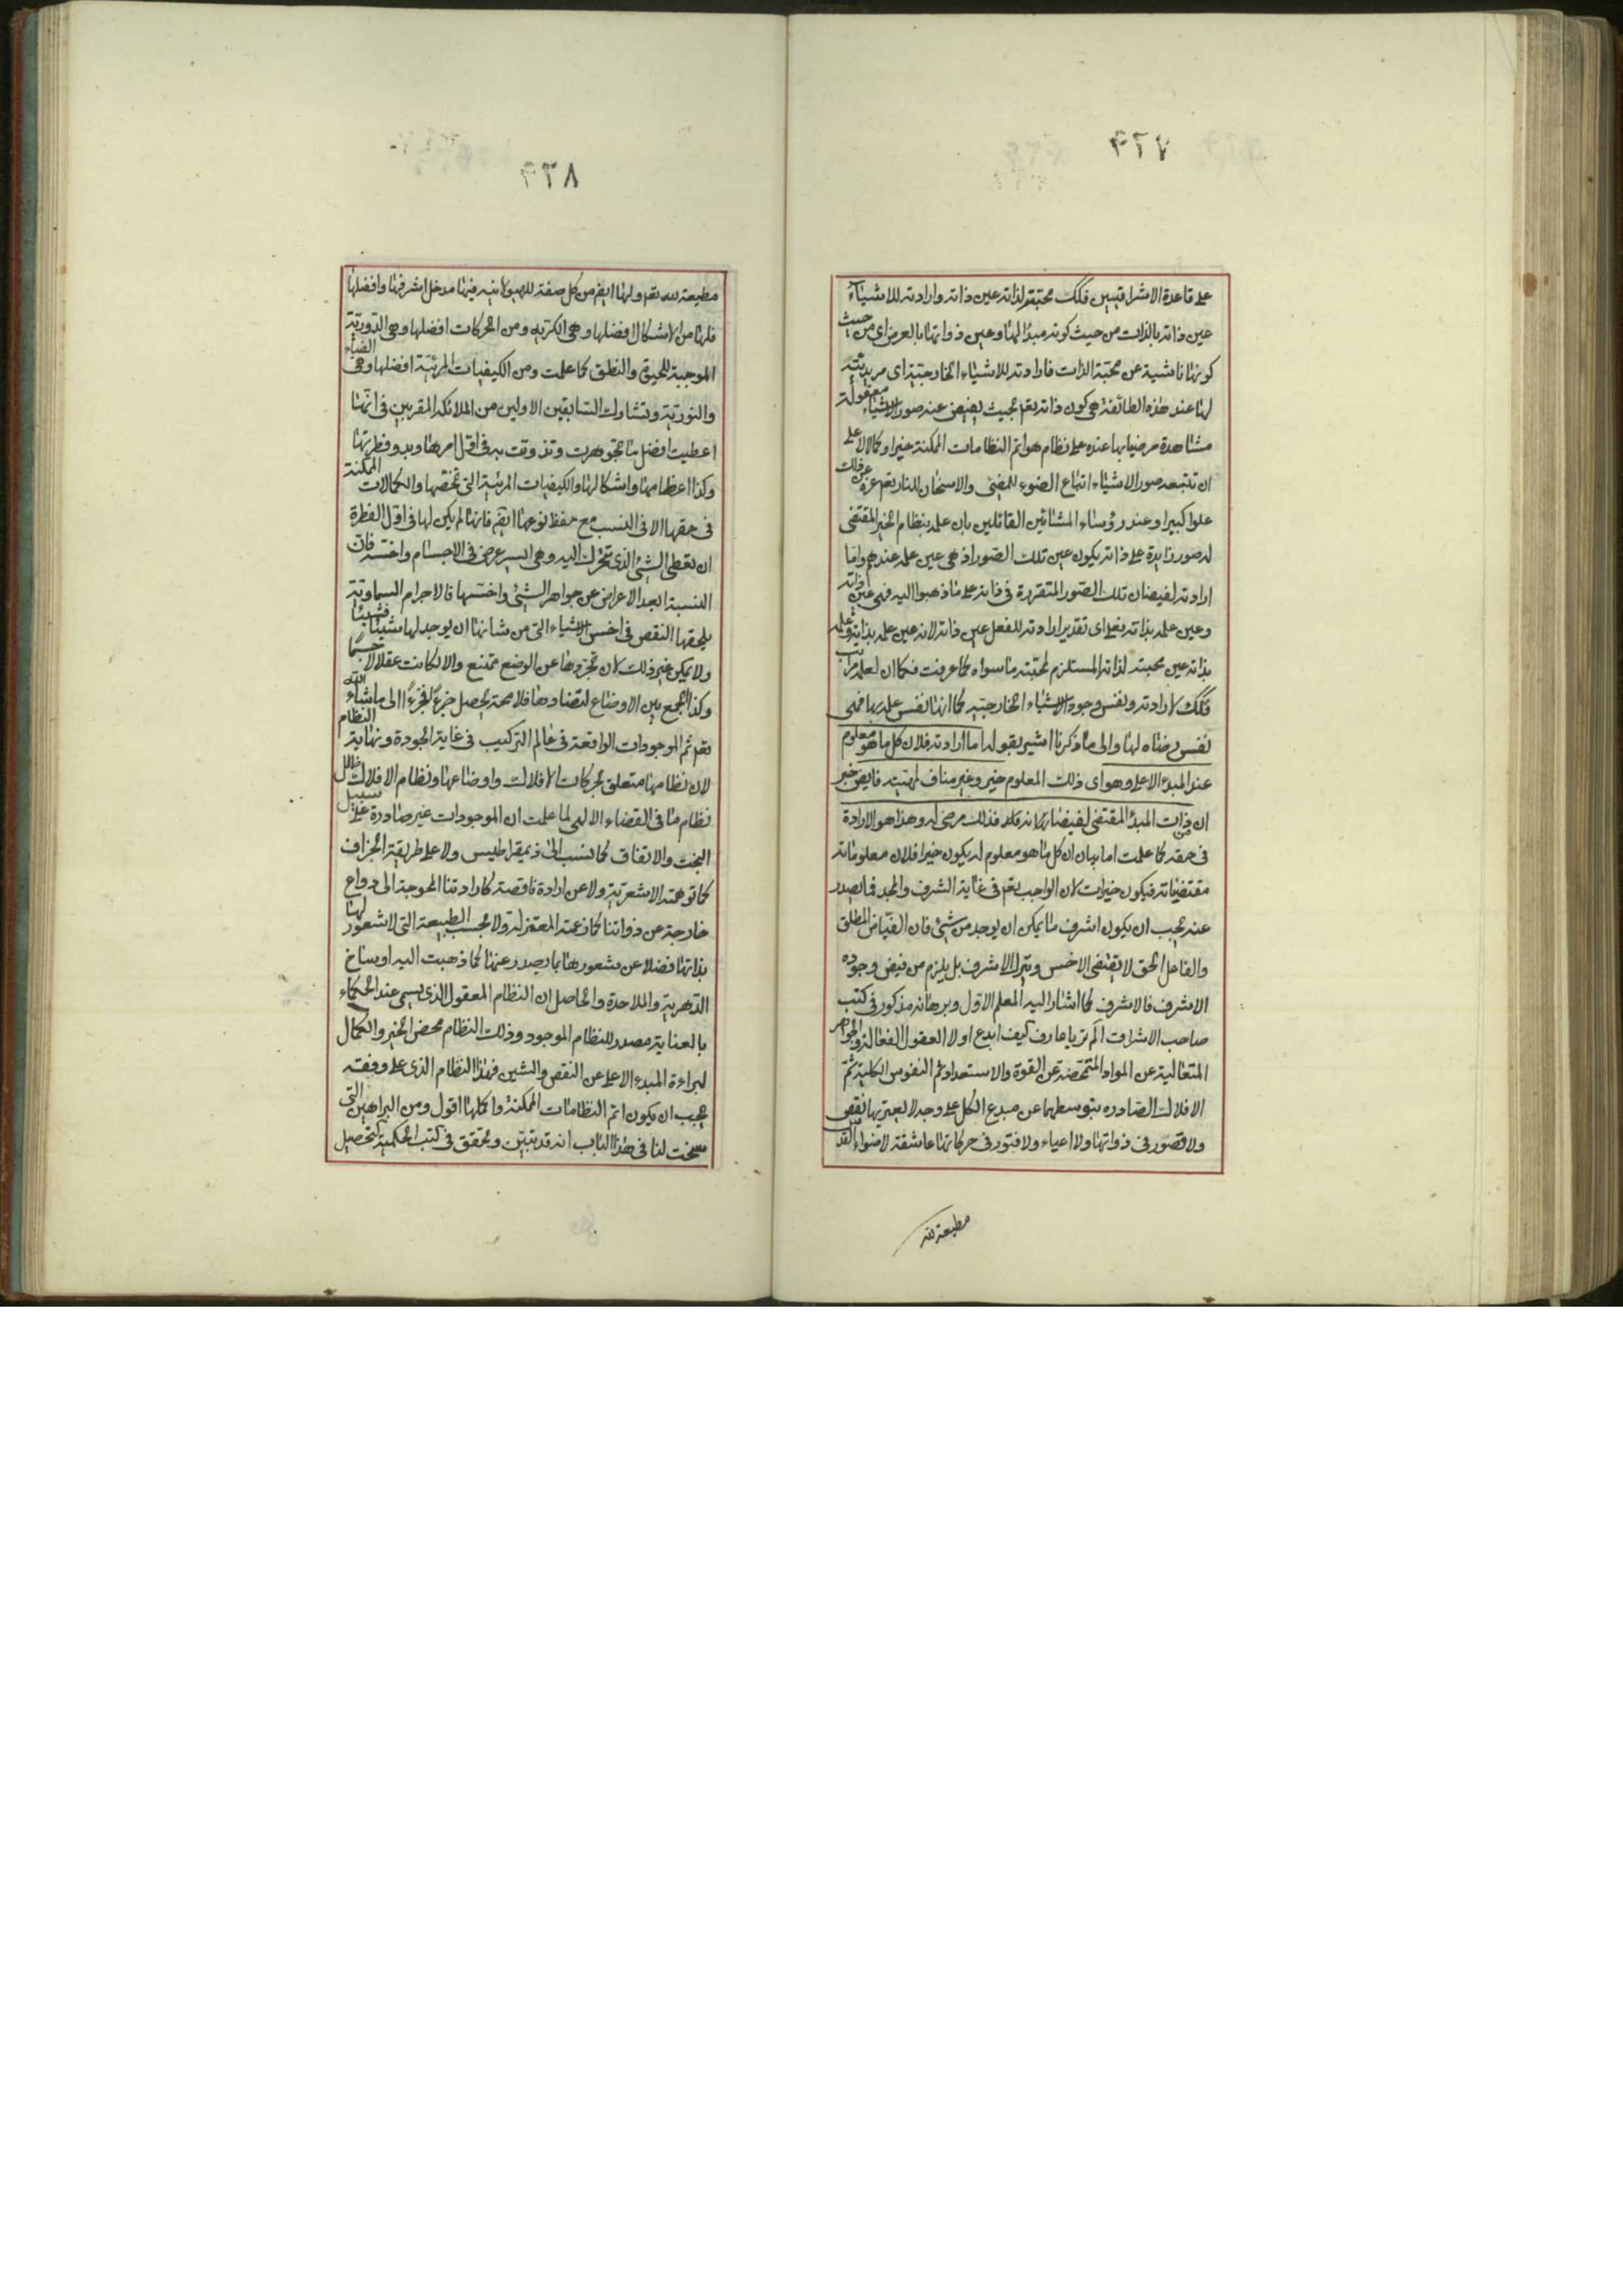 ٤٢٧
على قاعدة الاشراقيين فكك محبته لذاته عين ذاته وارادته للاشياء
عين ذاته بالذات من حيث كونه مبدأ لها وعين ذواتها بالعرض اى من حيث
كونها ناشية عن محبة الذات فارادته للاشياء الخارجية اى مريديته
لها عند هذه الطائفة هى كون ذاته بقم بحيث يفيض عنه صور الاشياء معقولة
مشاهدة مرضيا بها عنده على نظام هو اتم النظامات الممكنة خيرا وكمالا لا على
ان تتبعه صور الاشياء اتباع الضوء للمضئ والاسخان للنار تعم عن ذلك
علوا كبيرا وعند رؤساء المشائين القائلين بان علمه بنظام الخير المقتضى
له صور زايدة على ذاته يكون عين تلك الصور اذ هى عين علمه عندهم واما
ارادته لفيضان تلك الصور المتقررة فى ذاته على ما ذهبوا اليه فهى عين ذاته
وعين علمه بذاته بفعل اى تقدير ارادته للفعل عين ذاته لانه عين علمه بذاته وعلمه
بذاته عين محبته لذاته المستلزم لمحبته ما سواه كما عرفت فكما ان لعلمه مراتب
فكك لارادته ونفس وجود الاشياء الخارجية كما انها نفس علمه بها فهى
نفس رضاه لها والى ما ذكرنا اشير بقوله اما ارادته فلان كل ما هو معلوم
عند المبدء الاعلى وهو اى ذلك المعلوم خير وغير مناف لمهيته فايض خبر
ان من ذات المبدأ المقتضى لفيضان فذلك مرضى له وهذا هو الارادة
فى حقه كما علمت اما بيان ان كل ما هو معلوم له يكون خيرا فلان معلوماته
مقتضياته فيكون خيرات لان الواجب بقم فى غاية الشرف والمجد فما يصدر
عنه يجب ان يكون اشرف ما يمكن ان يوجد من شئ فان الفياض المطلق
والفاعل الحق لا يقتضى الاخس ويترك الاشرف بل يلزم من فيض وجوده
الاشرف فالاشرف كما اشار اليه المعلم الاول وبرهانه مذكور فى كتب
صاحب الاشراق الم تر يا عارف كيف ابدع اولا العقول الفعالة والجواهر
المتعالية عن المواد المتمحضة عن القوة والاستعداد ثم النفوس الكلية ثم
الافلاك الصادره بتوسطهما عن مبدع الكل على وجه لا يعتريها نقص
ولا قصور فى ذواتها ولا اعياء ولا فتور فى حركاتها عاشقة لاضواء القدس
مطيعة لله
٤٢٨
مطيعة لله تعم ولها ايضم من كل صفة للهيولانيه فيها مدخل اشرفها وافضلها
فلها من الاشكال افضلها وهى الكريه ومن الحركات افضلها وهى الدورية
الموجبة للحيوة والنطق كما علمت ومن الكيفيات المرئية افضلها وهى الضياء
والنورية وتشارك السابقين الاولين من الملائكة المقربين فى انها
اعطيت افضل ما تجوهرت وتذوتت به فى اول امرها وبدو فطرتها
وكذا اعظامها واشكالها والكيفيات المرئية التى تختصها والكمالات الممكنة
فى حقها الا فى النسب مع حفظ نوعها ايضم فانها لم يكن لها فى اول الفطرة
ان يعطى الشئ الذى تتحرك اليه وهى ايسر عرض فى الاجسام واخسه فان
النسبة ابعد الاعراض عن جواهر الشئ واخسها فالاجرام السماوية
يلحقها النقص فى اخس الاشياء التى من شانها ان يوجد لها شيئا فشيئا
ولا يمكن غير ذلك لان تجردها عن الوضع ممتنع والا لكانت عقلا لا جسما
وكذا الجمع بين الاوضاع لتضادها فلا محة يحصل جزءا فجزءا الى ما شاء الله
تعم ثم الموجودات الواقعة فى عالم التركيب فى غاية الجودة ونهاية النظام
لان نظامها متعلق بحركات الافلاك واوضاعها ونظام الافلاك ظلال
نظام ما فى القضاء الالهى لما علمت ان الموجودات غير صادرة على سبيل
البخت والاتفاق كما نسب الى ذيمقراطيس ولا على طريقة الجزاف
كما توهمه الاشعرية ولا عن ارادة ناقصة كارادتنا المحوجة الى دواع
خارجة عن ذواتنا كما زعمته المعتزلة ولا بحسب الطبيعة التى لا شعور لها
بذاتها فضلا عن شعورها بما يصدر عنها كما ذهبت اليه اوساخ
الدهرية والملاحدة والحاصل ان النظام المعقول الذى يسمى عند الحكماء
بالعناية مصدر للنظام الموجود وذلك النظام محض الخير والكمال
لبراءة المبدء الاعلى عن النقص والشين فهذا النظام الذى على وفقه
يجب ان يكون اتم النظامات الممكنة واكملها اقول ومن البراهين التى
سخت لنا فى هذا الباب انه قد يتبين ويتحقق فى كتب الحكمية لتحصيل